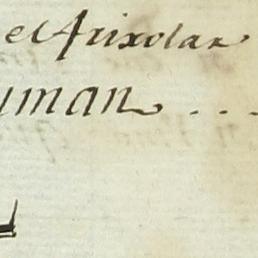 el Frixolar
yman ...